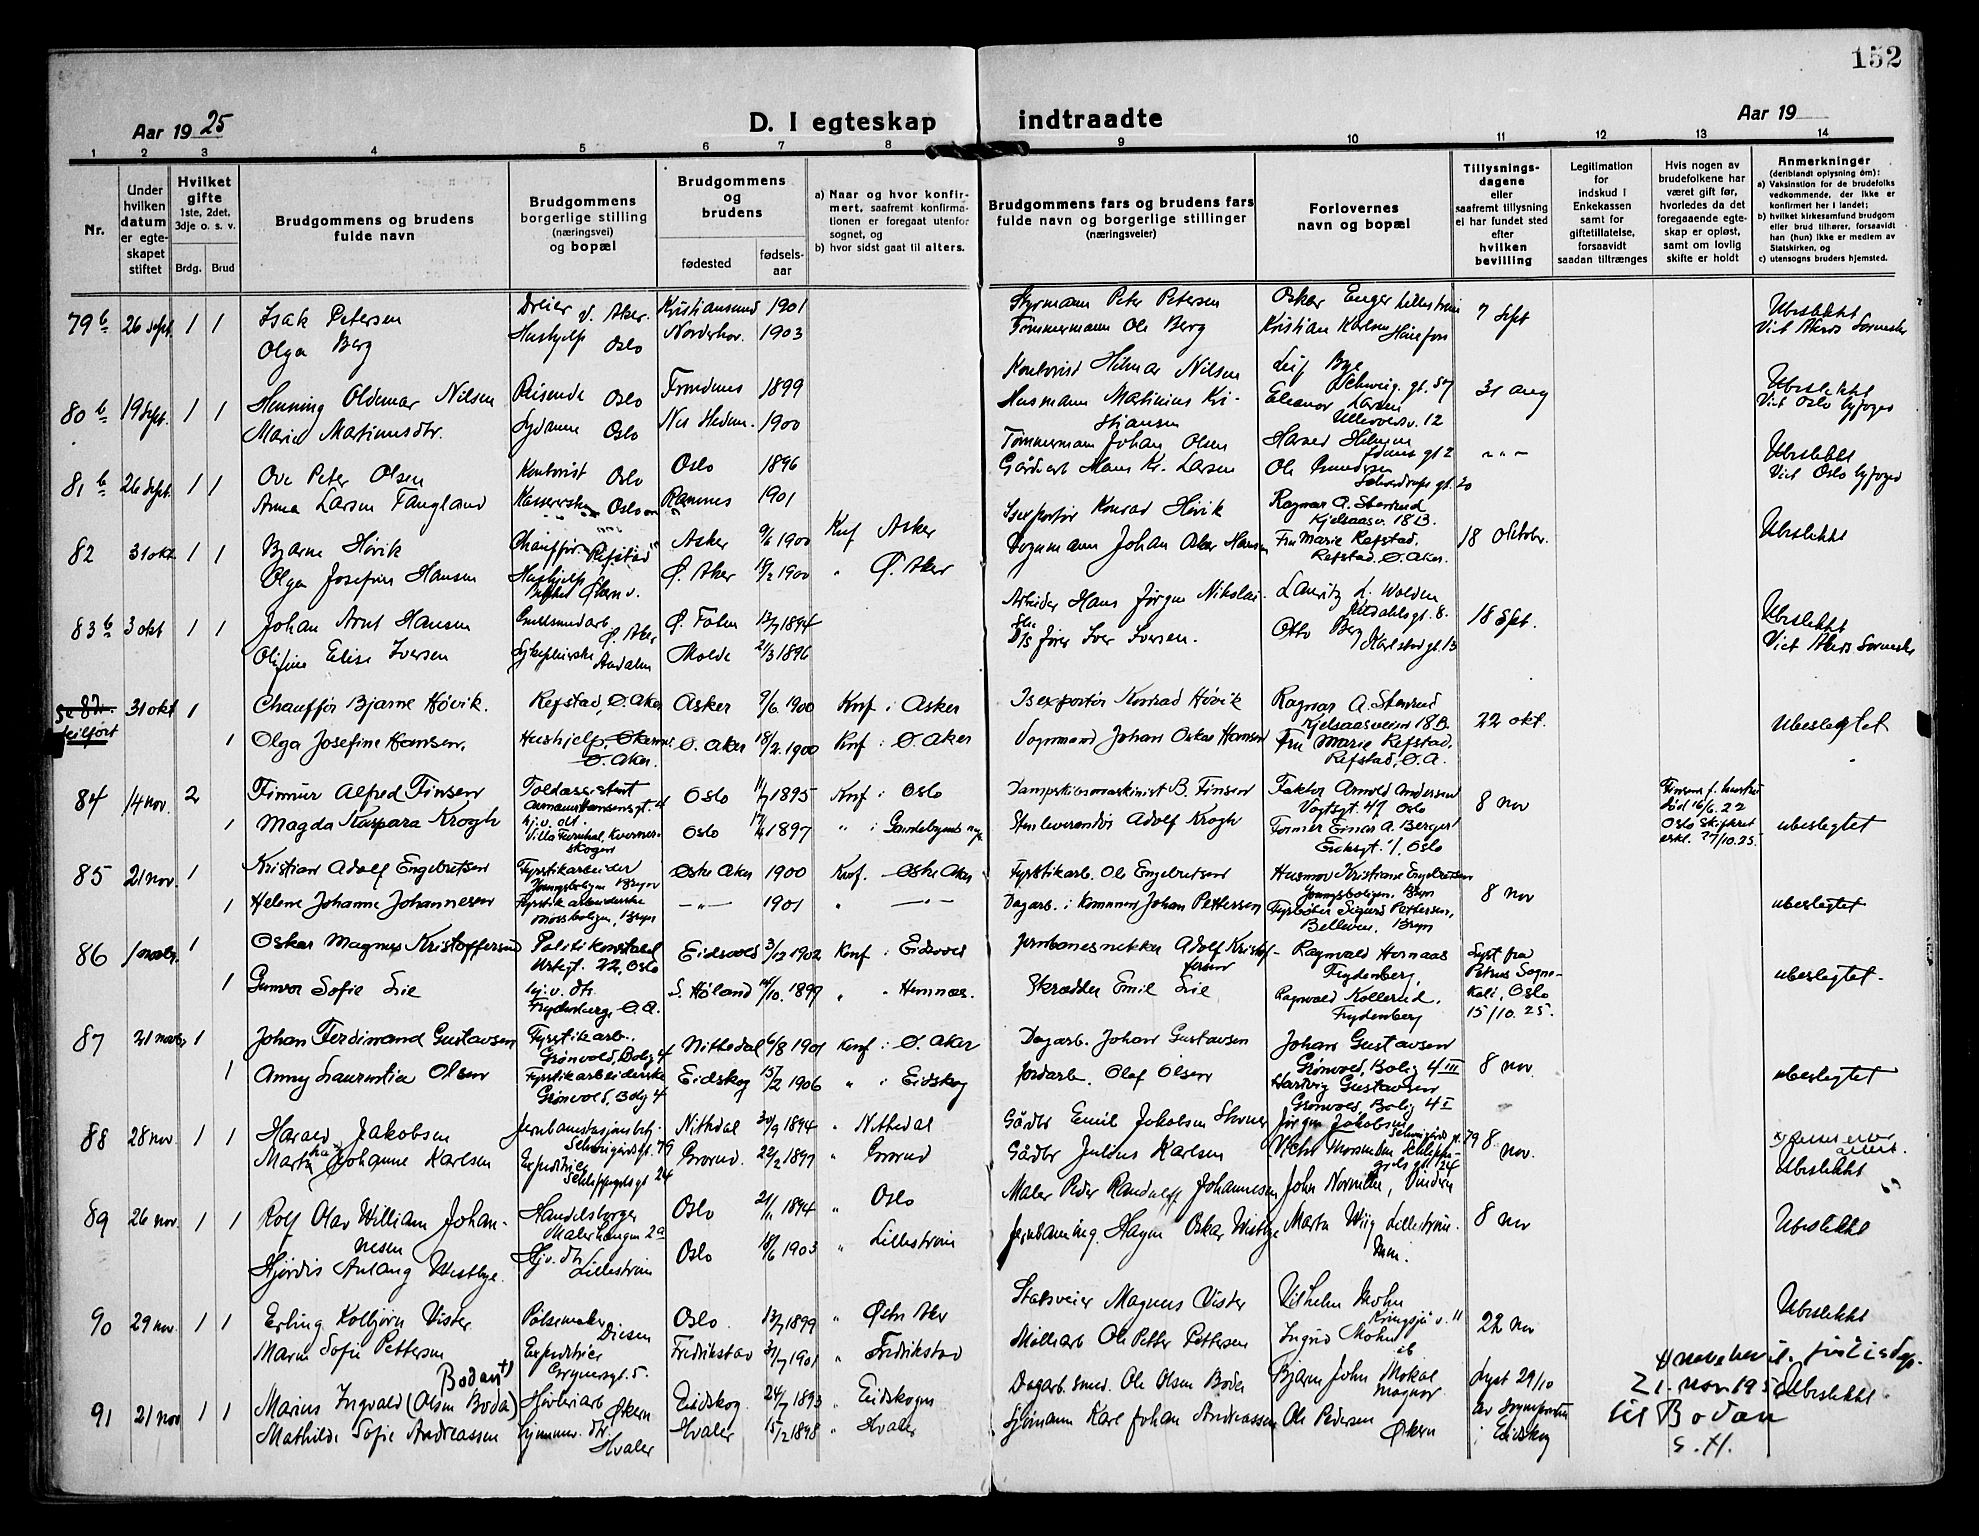 152
Aar 19 25
D. I egteskap indtraadte
Aar 19
1 2 3 4 5 6 7 8 9 10 11 12 13 14
Nr.
Under hvilken datum er egteskapet stiftet
Hvilket gifte
1ste, 2det, 3dje o. s. v.
Brdg. Brud
Brudgommens og brudens fulde navn
Brudgommens borgerlige stilling (næringsvei) og bopæl
Brudgommens og brudens
fødested
fødselsaar
a) Naar og hvor konfirmert, saafremt konfirmationen er foregaat utenfor sognet, og
b) hvor sidst gaat til alters.
Brudgommens fars og brudens fars fulde navn og borgerlige stillinger (næringsveier)
Forlovernes navn og bopæl
Tillysningsdagene eller saafremt tillysning ei har fundet sted efter hvilken bevilling
Legitimation for indskud i Enkekassen samt for giftetillatelse, forsaavidt saadan tiltrænges
Hvis nogen av brudefolkene har været gift før, hvorledes da det foregaaende egteskap er opløst, samt om lovlig skifte er holdt
Anmerkninger (deriblandt oplysning om):
a) Vaksinstion for de brudefolks vedkommende, der ikke er konfirmert her i landet;
b) hvilket kirkesamfund brudgom eller brud tilhører, forsaavidt han (hun) ikke er medlem av Statskirken, og
c) utensogns bruders hjemsted.
79 b 26 sept. 1 1 Isak Petersen Dreier v. Aker. Kristiansund 1901 Styrmann Peter Petersen Oskar Enger Lillestrøm 7 sept Ubeslektet
Olga Berg Hushjelp Oslo Norderhov. 1903 Tømmermann Ole Berg Kristian Karlsen Hønefoss Viet Akers Sorenskr
80 b 19 Sept. 1 1 Henning Oldemar Nilsen Reisende Oslo 1899 Kontorist Hilmar Nilsen Leif Bye Schweig. gt. 57 31 aug Ubeslektet
Marie Martinusdtr. Sydame Oslo Nes Hedm. 1900 Husmann Martinius Kristiansen Eleanor Larsen Ullevoldsv. 12 Viet Oslo byfoged
81 b 26 sept. 1 1 Ove Peter Olsen Kontorist Oslo Oslo 1896 Tømmermann Johan Olsen gt 2 - " - Ubeslektet
Anna Larsen Fangland Kassererske Oslo Ramnes 1901 Gårdarb Hans Kr. Larsen Ole gt. 20 Viet Oslo byfoged
82 31 okt 1 1 Bjarne Høvik Chauffør Refstad Asker 9/6 1900 Knf Asker Isexportør Konrad Høvik Ragnar A. Stensrud Kjelsaasv. 18 B. 18 Oktobr. Ubeslektet
Olga Josefine Hansen Hushjelp Økern v. Ø. Aker 18/2 1900 " Ø. Aker Vognmann Johan Oskar Hansen Fru Marie Refstad. Refstad. Ø. Aker.
83 b 3 okt 1 1 Johan Arnt Hansen Ø. Aker 13/7 1894 Arbeider Hans Jørgen Nikolai. Lauritz L. Wolden gt. 8. 18 Sept. Ubeslektet
Olefine Elise Iversen Andalen Molde 2/3 1896 Iver Iversen. Otto Berg Karlstad gt. 13 Viet Akers Sorenskr
Se 82. feilført 31 okt 1 Chauffør Bjarne Høvik. Refstad, Ø. Aker Asker 9/6. 1900 Knf i Asker Isexportør Konrad Høvik Ragnar A. Stensrud Kjelsaasveien 18 B. 22 okt. Ubeslegtet
1 Olga Josefine Hansen. Hushjelp, Økernv. Ø. Aker. Ø. Aker 18/2. 1900 Knf i Ø. Aker Vognmand Johan Oskar Hansen Fru Marie Refstad, Refstad, Ø. A.
84 14 nov. 2 Finnur Alfred Finsen Toldassistent Oslo 11/7 1895 Knf i Oslo Dampskibsmaskinist B. Finsen Faktor Arnold Andersen Vogtsgt. 47 Oslo 8 nov Finsens f. hustru død 16/6. 22 Oslo skifteret erkl. 27/10. 25. ubeslegtet
1 Magda Kaspara Krogh hj. v. dtr. Villa Furuhal Kvernerskogen Oslo 17/4 1897 " i Stenleverandør Adolf Krogh Former Einar A. Berger Eriksgt. 1, Oslo
85 21 nov. 1 Kristian Adolf Engebretsen Fyrstikarbeider Youngsboligen Bryn Østre Aker 1900 Knf. - Østre Aker Fyrstikarb. Ole Engebretsen Husmor Kristiane Engebretsen Youngsboligen, Bryn 8 nov
1 Helene Johanne Johannesen Fyrstikarbeiderske Bryn - " - 1901 " - " - Dagarb. i Kommunen Johan Pettersen Fyrbøter Sigurd Pettersen, Bellevue, Bryn ubeslegtet
86 1 novbr. 1 Oskar Magnus Kristoffersen Politikonstabel Urtegt. 22, Oslo Eidsvold 3/12 1902 Knf i Eidsvold Jernbanesnekker Adolf Kristoffersen Ragnvald Hornaas Frydenberg, Lyst fra Petrus Sognekald, Oslo 15/10. 25. ubeslegtet.
1 Gunvor Sofie Lie hj. v. dtr. Frydenberg, Ø. A. S. Høland 14/10. 1899 " " Hemnes. Skrædder Emil Lie Ragnvald Kollerud, Frydenberg
87 21 novbr 1 Johan Ferdinand Gustavsen Fyrstikarb. Grønvold, Bolig 4 Nittedal 6/8 1901 Knf i Ø. Aker Dagarb. Johan Gustavsen Johan Gustavsen Grønvold, Bolig 4 III 8 nov.
1 Anny Laurentia Olsen Fyrstikarbeiderske Grønvold, Bolig 4 Eidskog 15/2 1906 " i Eidskog Jordarb. Olaf Olsen Hartvig Gustavsen Grønvold, Bolig 4 I ubeslegtet
88 28 nov. 1 1 Harald Jakobsen Schweigårdsgt. 79 Nittedal 30/9 1894 " Nittedal Gårdbr Emil Jakobsen Jørgen Jakobsen Schweigårds gt. 79 8. nov.
Marta Johanne Karlsen Expeditrice Schleppegrelsgt 24 Grorud. 22/2 1897 " Grorud Gårdbr Julius Karlsen Schleppegrels gt. 24 Ubeslektet
89 26 nov. 1 1 Rolf Olav William Johannesen Handelsborger Malerhaugen 2a Oslo 21/11 1894 " Oslo Maler Peder Randulff Johannesen John Vinderen 8 nov Ubeslektet
Hjørdis Aslaug Westbye. Hj. v. dtr. Lillestrøm Oslo 18/6 1903 " Lillestrøm Oskar Westbye Marta Wiig Lillestrøm.
90 29 nov. 1 1 Erling Kolbjørn Vister Pølsemaker Disen Oslo. 13/7 1899 " Østre Aker Magnus Vister Vilhelm Mohn Kringsjå v. 11 22 nov Ubeslektet
Maren Sofie Pettersen Expeditrice Brynsgt. 5. Fredrikstad 31/7 1901 " Fredrikstad Møllearb Ole Petter Pettersen Ingrid Mohn
Bodan +)
91 21 nov 1 1 Marius Ingvald (Olsen Boda) Økern Eidskog. 24/7 1893 " Eidskogen Dagarb. smed. Ole Olsen Boda Bjarne John Mokal Magnor. Lyst 29/10 av sognepresten i Eidskog Ubeslektet
Mathilde Sofie Andreassen Hvaler Hvaler 15/2 1898 " Hvaler Sjømann Karl Johan Andreassen Ole Pedersen Økern
Navnebev. justisdep. 21. nov 195
til Bodan
S. H.